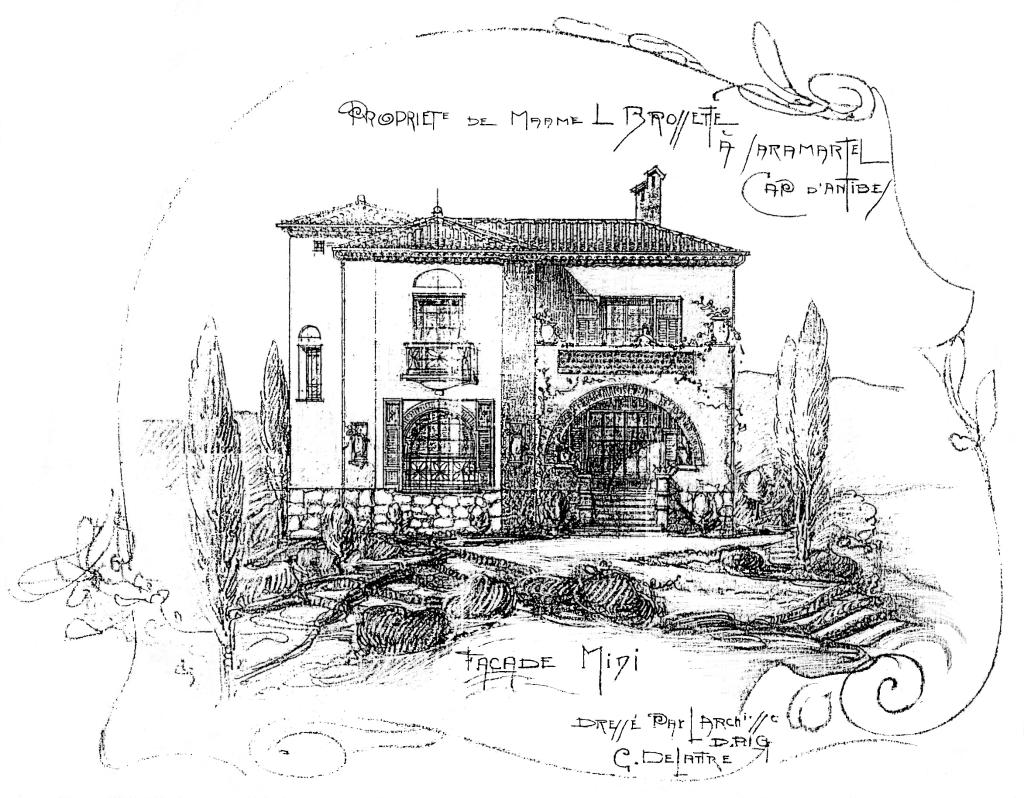 PROPRIETE DE MADAME L BROSSETTE
À SARAMARTEL
CAP D'ANTIBES
FAÇADE MIDI
DRESSÉ PAR L'ARCHI
G. DELATTRE